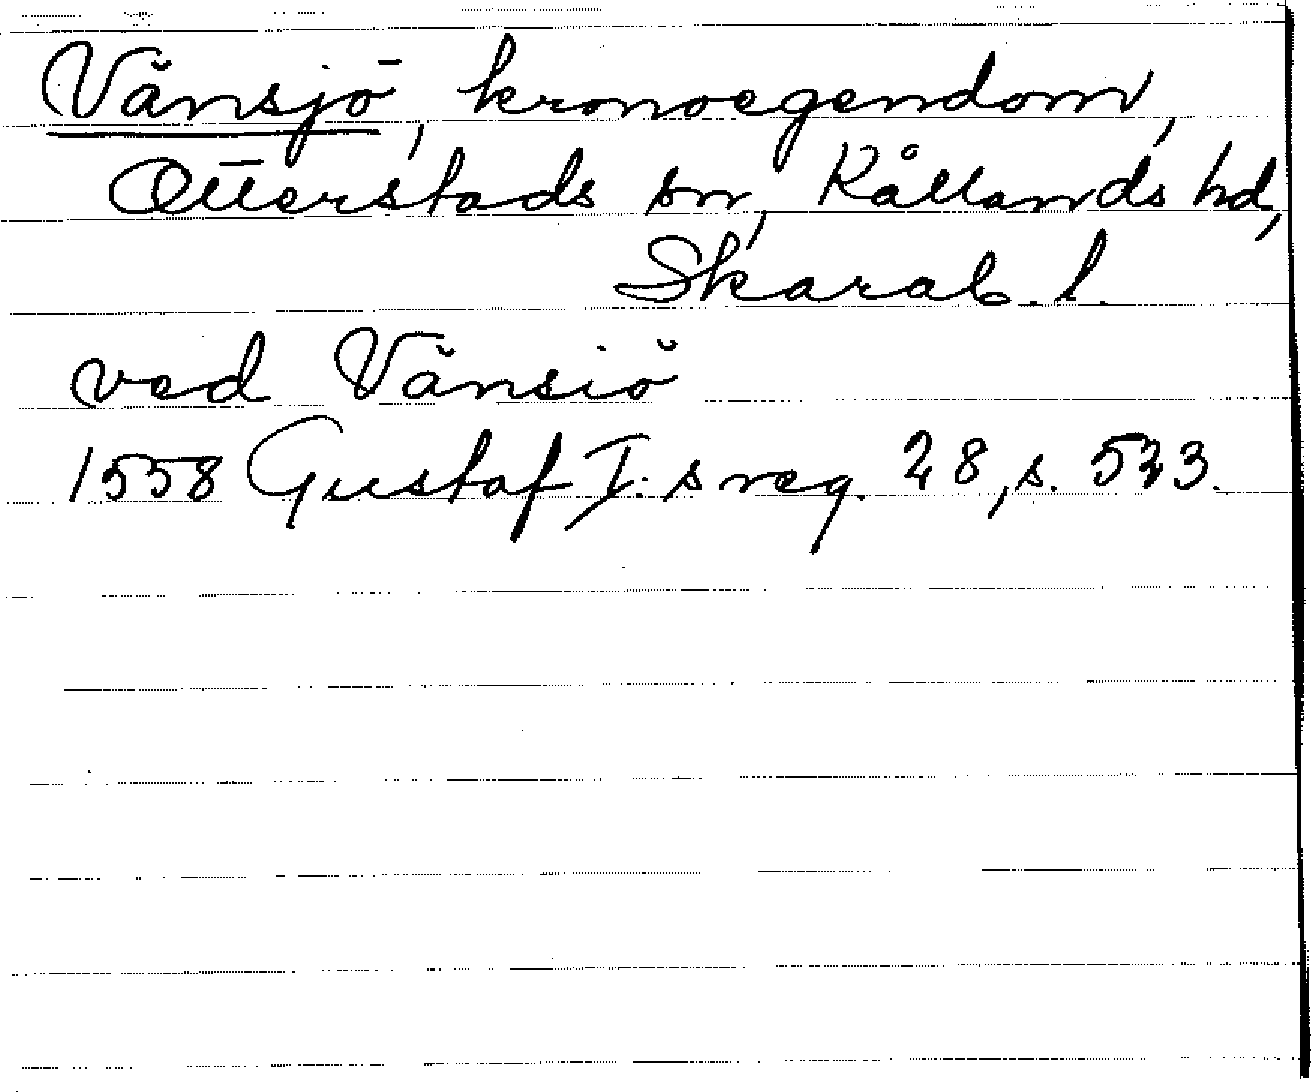 Vänsjö, kronoegendom,
Otterstads sn, Kållands hd,
Skarab. l.
ved Vänsiö
1558 Gustaf I:s reg. 28, s. 523.